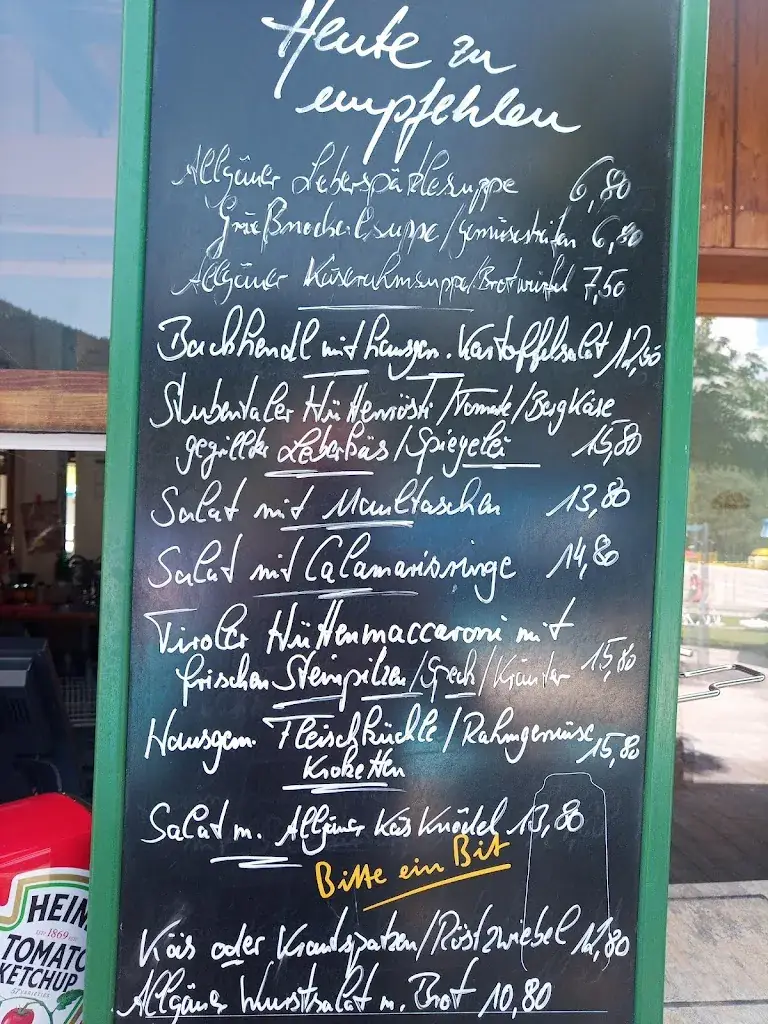 Heute zu
empfehlen
Allgäuer Leberspätzlesuppe 6,80
Grießnockerlsuppe/Gemüsestreifen 6,80
Allgäuer Käserahmsuppe/Brotwürfel 7,50
Backhendl mit hausgem. Kartoffelsalat 12,50
Stubentaler Hüttenrösti/Tomate/Bergkäse
gegrillter Leberkäs/Spiegelei 15,80
Salat mit Maultaschen 13,80
Salat mit Calamarisringe 14,80
Tiroler Hüttenmaccaroni mit
frischen Steinpilzen/Speck/Kräuter 15,80
Hausgem. Fleischküchle/Rahmgemüse 15,80
Kroketten
Salat m. Allgäuer Käs Knödel 13,80
Bitte ein Bit
Käs oder Krautspatzen/Röstzwiebel 12,80
Allgäuer Wurstsalat m. Brot 10,80
HEIN
1869
TOMATO
KETCHUP
57 VARIETIES